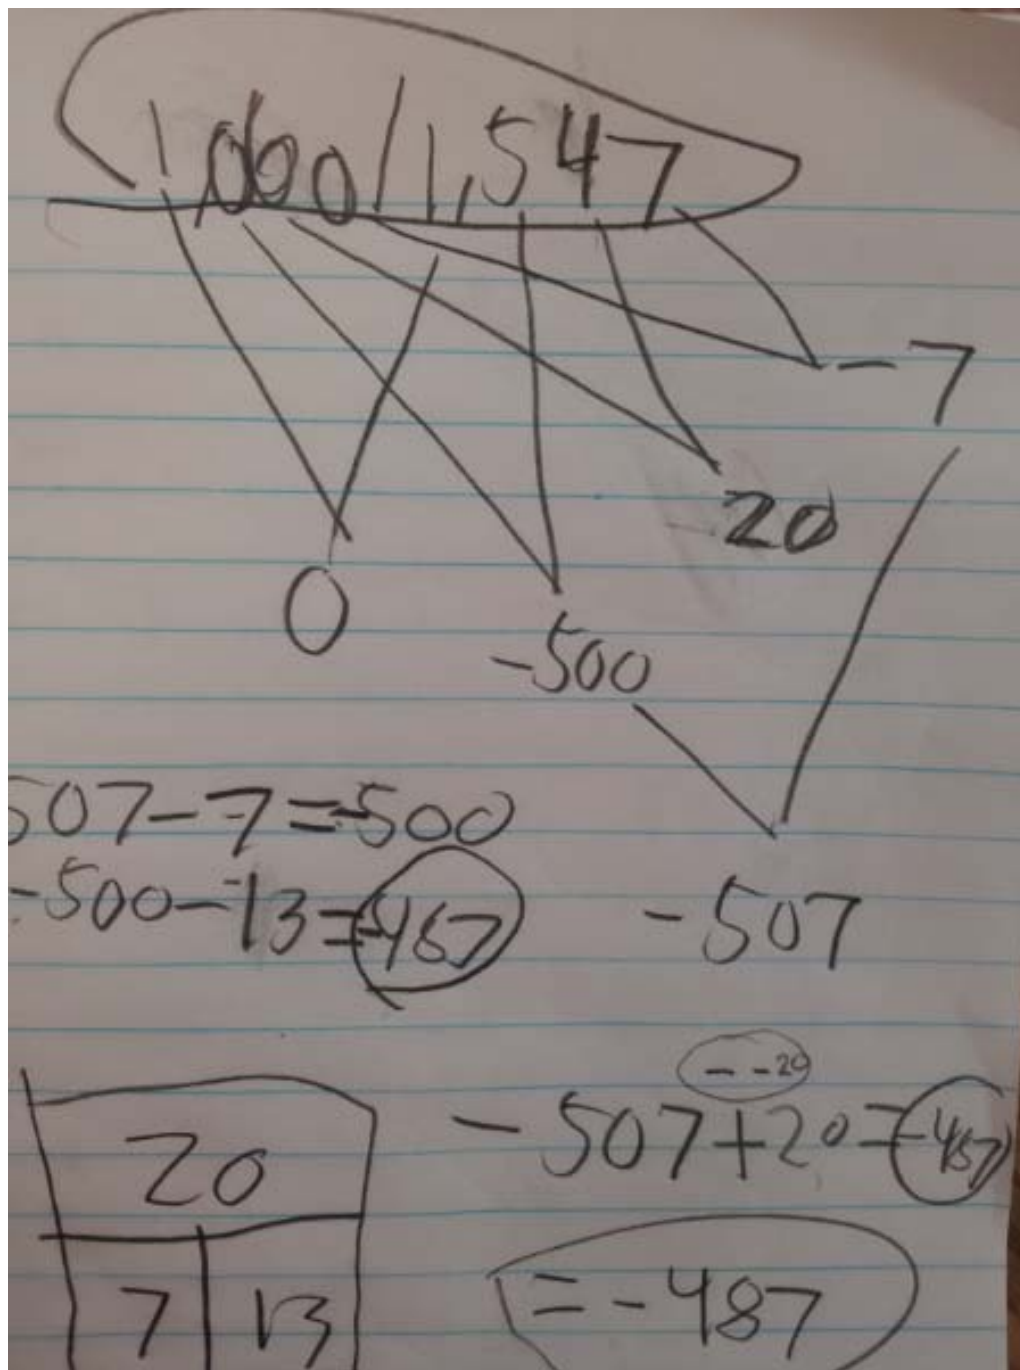 1,060/1,547
-7
20
0
-500
507-7=-500
-500--13=-487
-507
--20
-507+20=-487
20
7 13
=-487